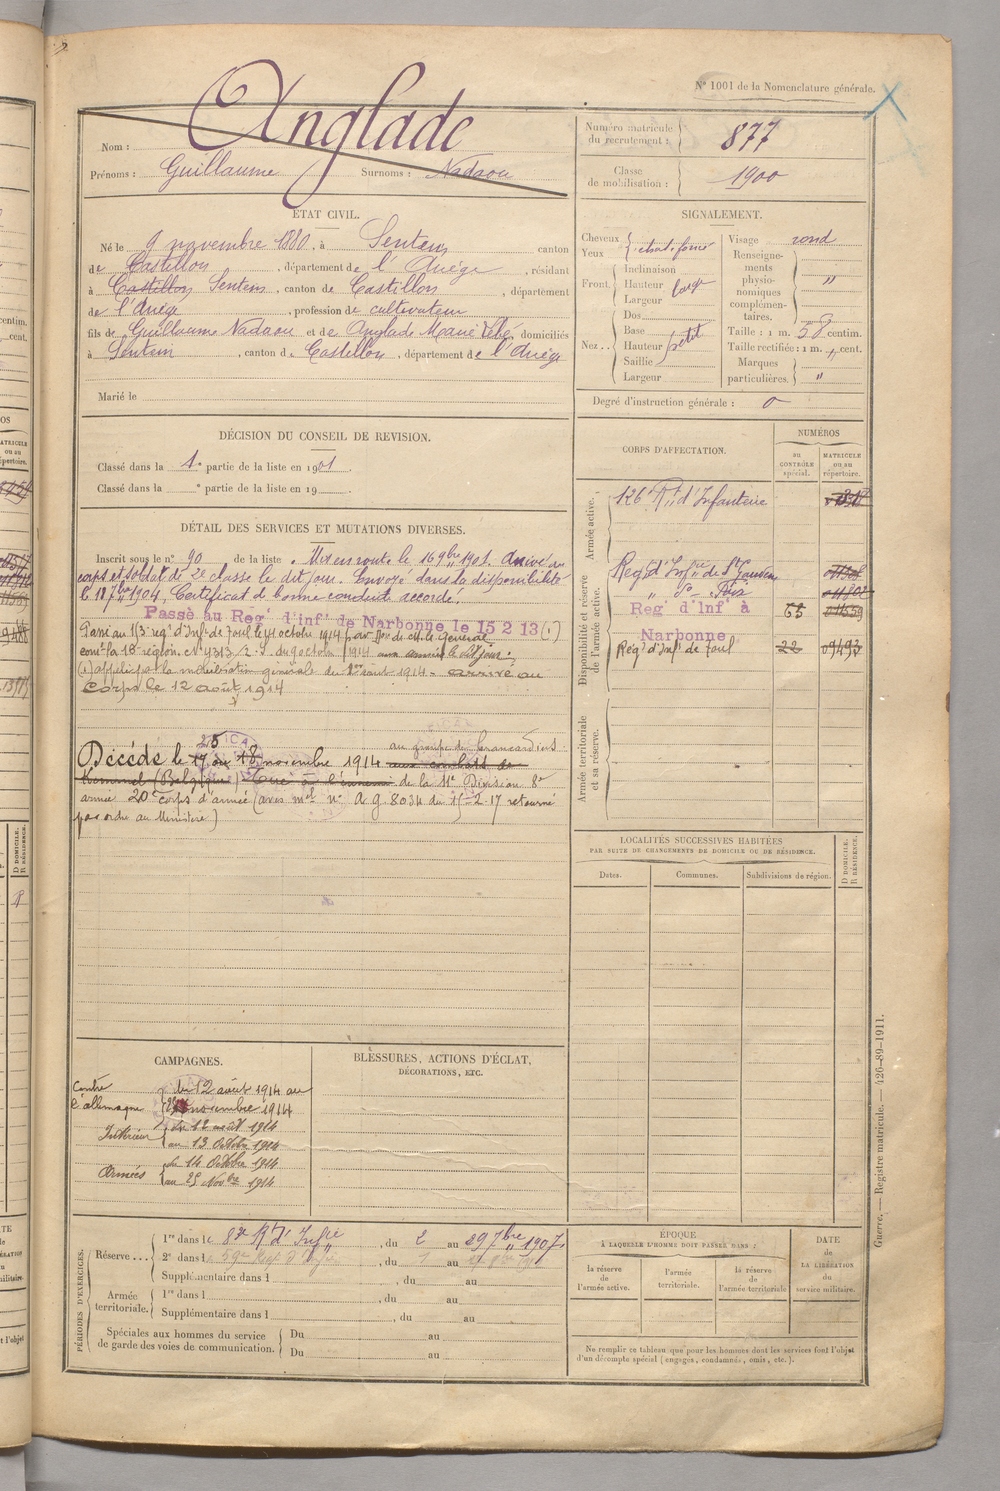 N° 1001 de la Nomenclature générale.
Nom : Anglade
Prénoms : Guillaume Surnoms : Nadaou
Numéro matricule du recrutement : 877
Classe de mobilisation : 1900
ÉTAT CIVIL.
Né le 9 novembre 1880, à Sentein, canton
de Castillon, département de l'Ariège, résidant
à Castillon Sentein, canton de Castillon, département
de l'Ariège, profession de cultivateur
fils de Guillaume Nadaou et de Anglade Marie, domiciliés
à Sentein, canton de Castillon, département de l'Ariège
Marié le
SIGNALEMENT.
Cheveux
Yeux
Front. Inclinaison
Hauteur
Largeur
Nez .. Dos
Base
Hauteur petit
Saillie
Largeur
Visage rond
Renseignements physionomiques complémentaires. "
Taille : 1 m. 58 centim.
Taille rectifiée : 1 m. " cent.
Marques particulières. "
Degré d'instruction générale : 0
DÉCISION DU CONSEIL DE REVISION.
Classé dans la 1e partie de la liste en 1901.
Classé dans la e partie de la liste en 19
DÉTAIL DES SERVICES ET MUTATIONS DIVERSES.
Inscrit sous le n° 90 de la liste. Mis en route le 16 9bre 1901. Arrivé au
corps et soldat de 2e classe le dit jour. Envoyé dans la disponibilité
le 18 7bre 1904, Certificat de bonne conduite accordé.
Passé au Regt d'inf' de Narbonne le 15 2 13 (1)
Passé au regt d'Inf. de Toul le octobre 1914 par de Mr le Général
comt la 18 région. N° 4313/2. du 9 octobre 1914 arrivé le dit jour.
(1) appelé par la mobilisation générale du 1er août 1914 - arrivé au
Corps le 12 août 1914
25
Décédé le 17 au 18 novembre 1914 aux combats de au groupe de brancardiers
Kemmel (Belgique) Tué à l'ennemi de la 11e Division 8e
armée 20e corps d'armée (avis mel n° A g. 8034 du 15-2-17 retourné
par ordre au Ministère.)
CORPS D'AFFECTATION.
NUMÉROS
au CONTRÔLE spécial.
MATRICULE ou au répertoire.
Armée active.
126e Rt d'Infanterie
Disponibilité et réserve de l'armée active.
Regt d'Infrie de St Gaudens
" do - Foix
Regt d'Inft à Narbonne 65
Regt d'Inf. de Toul 22
Armée territoriale et sa réserve.
LOCALITÉS SUCCESSIVES HABITÉES
PAR SUITE DE CHANGEMENTS DE DOMICILE OU DE RÉSIDENCE.
Dates.
Communes.
Subdivisions de région.
D DOMICILE.
R RÉSIDENCE.
CAMPAGNES.
Contre l'Allemagne du 12 août 1914 au
25 novembre 1914
Intérieur du 12 août 1914
au 13 Octobre 1914
Armées du 14 Octobre 1914
au 25 Novbre 1914
BLESSURES, ACTIONS D'ÉCLAT,
DÉCORATIONS, ETC.
PÉRIODES D'EXERCICES.
Réserve ... 1re dans le Rt d'Infrie, du 2 au 29 7bre 1907
2e dans le 59e Regt d'Infie, du 1 au
Supplémentaire dans l , du au
Armée territoriale. 1re dans l , du au
Supplémentaire dans l , du au
Spéciales aux hommes du service de garde des voies de communication. Du au
Du au
ÉPOQUE
À LAQUELLE L'HOMME DOIT PASSER DANS :
la réserve de l'armée active.
l'armée territoriale.
la réserve de l'armée territoriale
DATE de LA LIBÉRATION du service militaire.
Ne remplir ce tableau que pour les hommes dont les services font l'objet
d'un décompte spécial (engagés, condamnés, omis, etc.).
Guerre. — Registre matricule. — 426-89-1911.